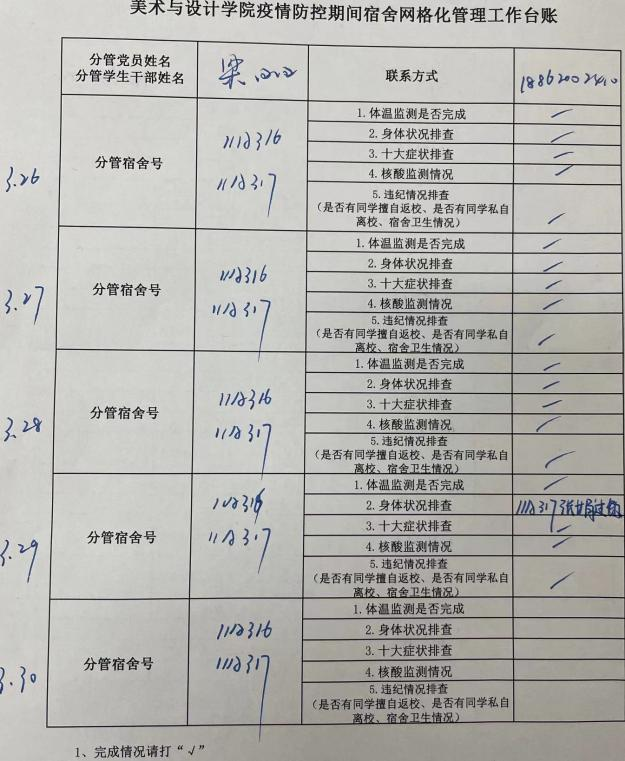 美术与设计学院疫情防控期间宿舍网格化管理工作台账
分管党员姓名
分管学生干部姓名
梁
联系方式
18862002410
3.26
分管宿舍号
11A316
11A317
1.体温监测是否完成
2.身体状况排查
3.十大症状排查
4.核酸监测情况
5.违纪情况排查
(是否有同学擅自返校、是否有同学私自
离校、宿舍卫生情况)
3.27
分管宿舍号
11A316
11A317
1.体温监测是否完成
2.身体状况排查
3.十大症状排查
4.核酸监测情况
5.违纪情况排查
(是否有同学擅自返校、是否有同学私自
离校、宿舍卫生情况)
3.28
分管宿舍号
11A316
11A317
1.体温监测是否完成
2.身体状况排查
3.十大症状排查
4.核酸监测情况
5.违纪情况排查
(是否有同学擅自返校、是否有同学私自
离校、宿舍卫生情况)
3.29
分管宿舍号
11A316
11A317
1.体温监测是否完成
2.身体状况排查
11A317
3.十大症状排查
4.核酸监测情况
5.违纪情况排查
(是否有同学擅自返校、是否有同学私自
离校、宿舍卫生情况)
3.30
分管宿舍号
11A316
11A317
1.体温监测是否完成
2.身体状况排查
3.十大症状排查
4.核酸监测情况
5.违纪情况排查
(是否有同学擅自返校、是否有同学私自
离校、宿舍卫生情况)
1、完成情况请打“√”